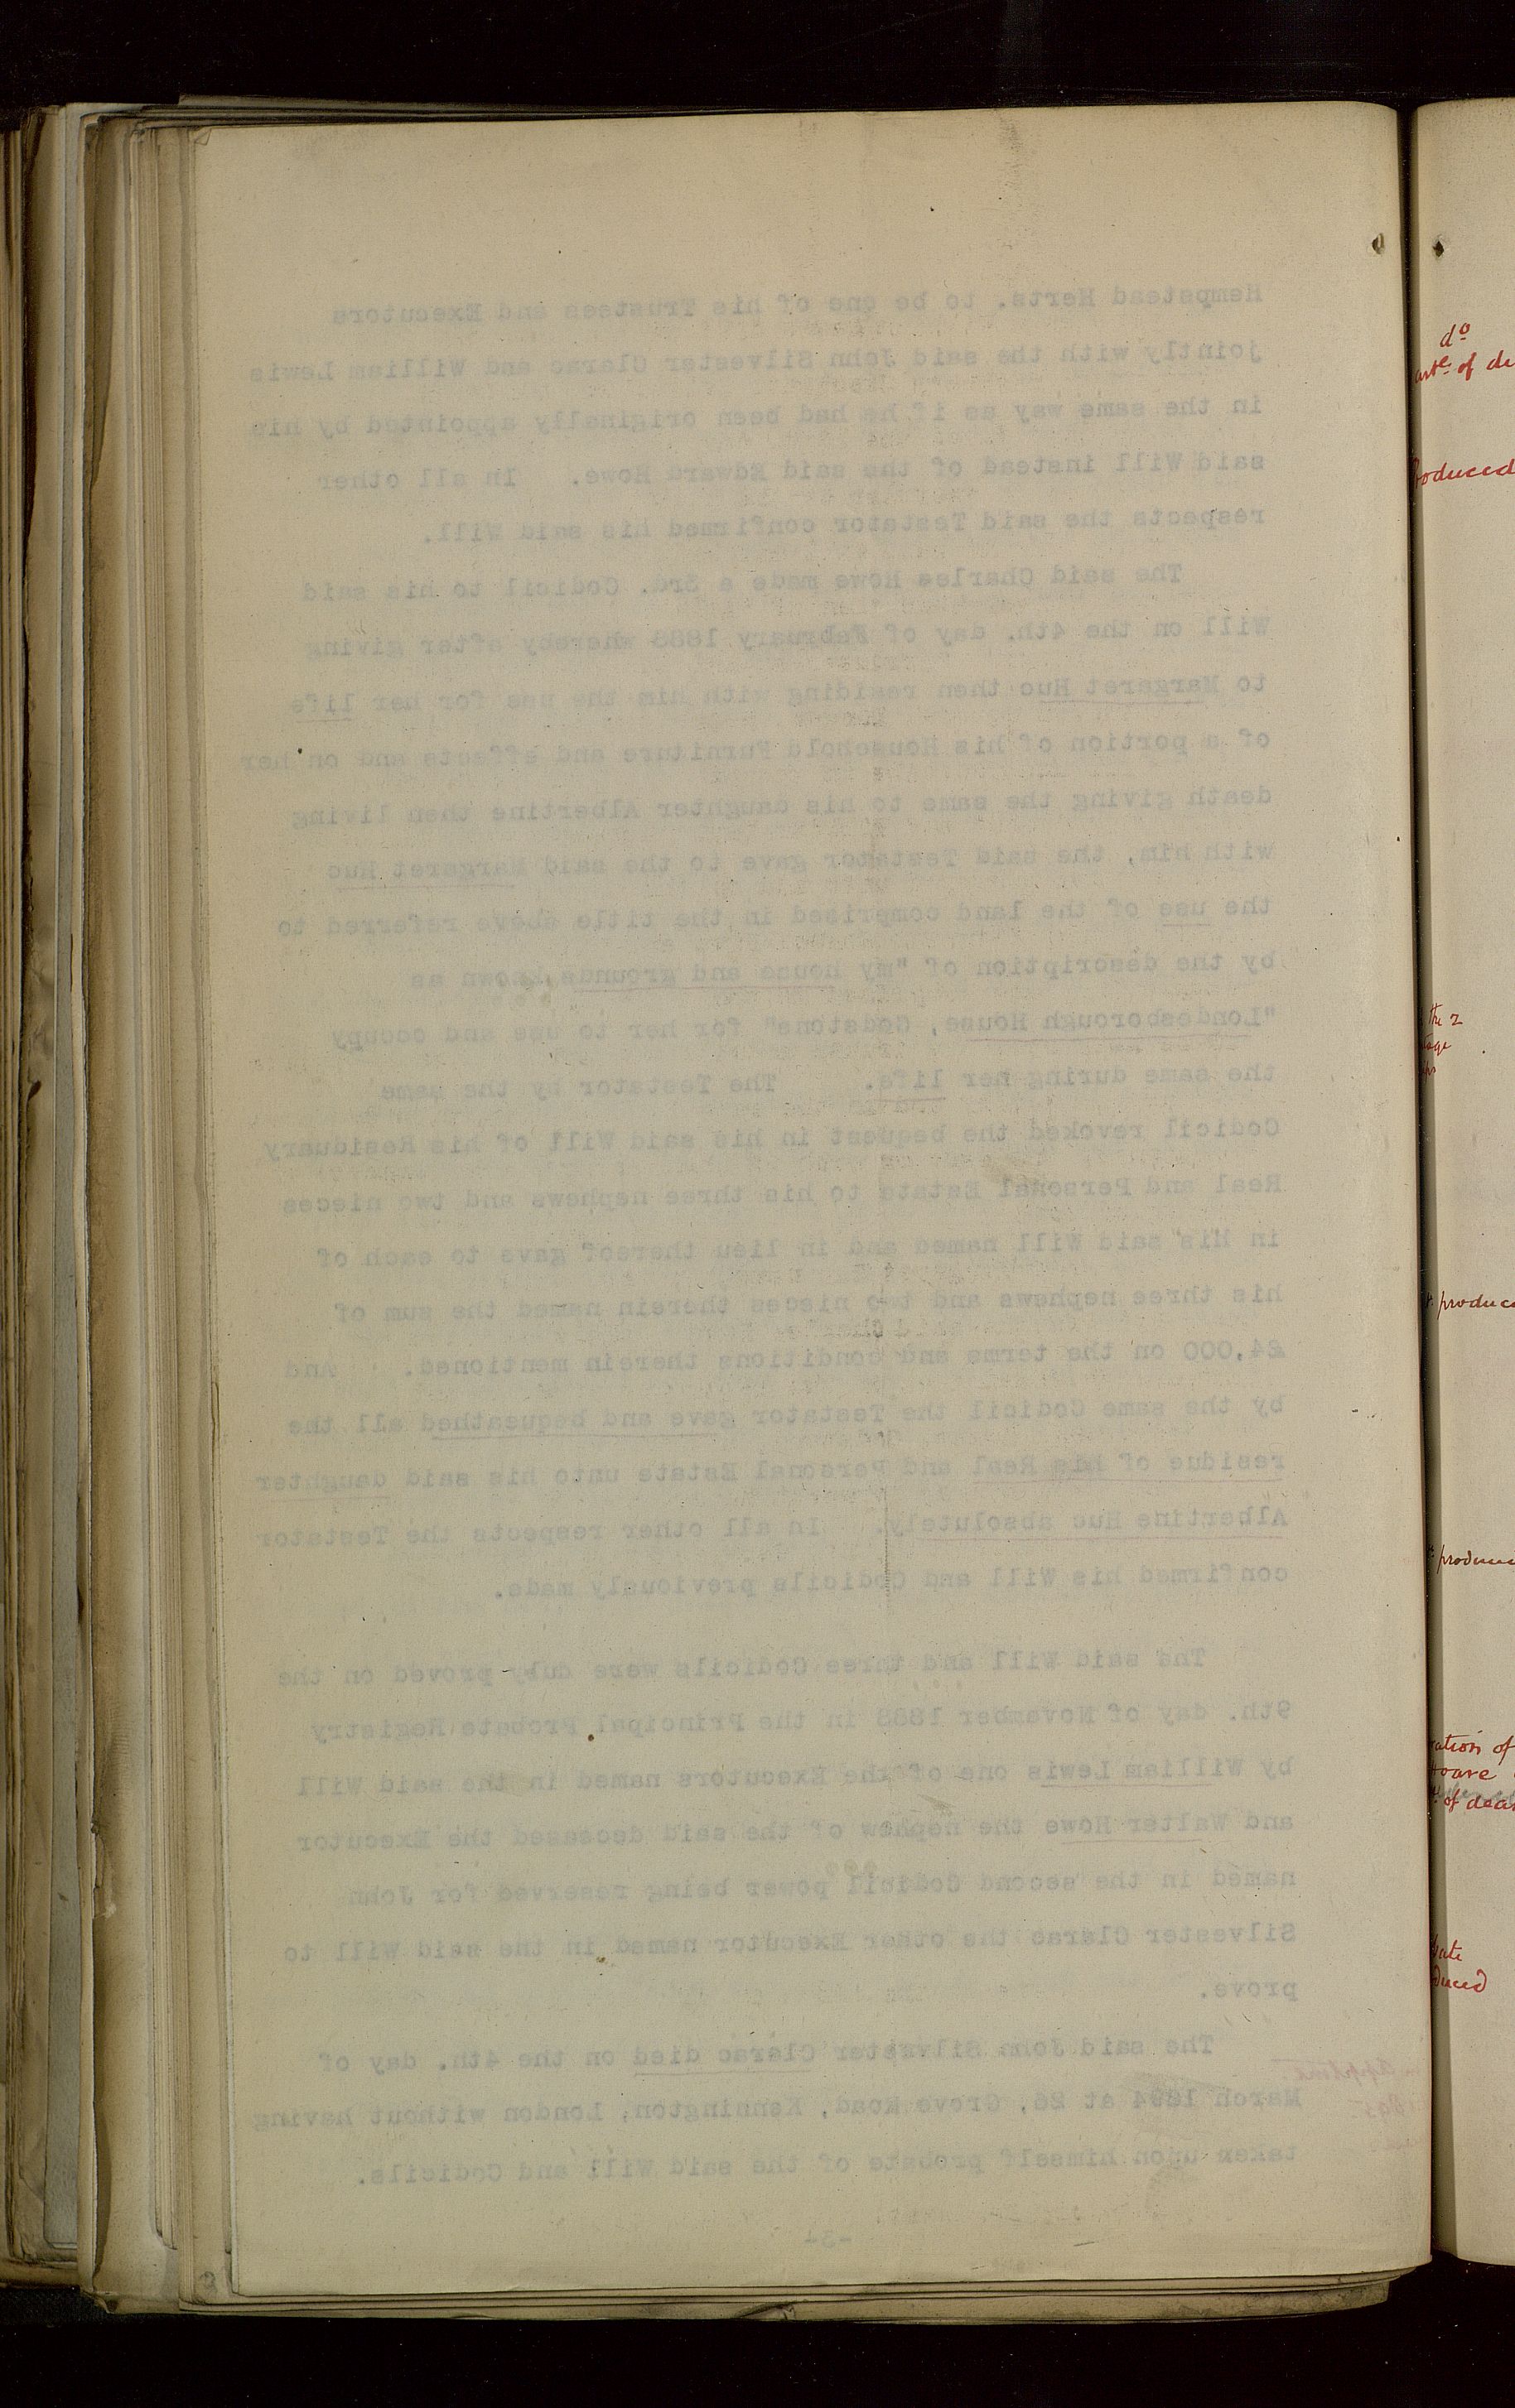 Hempstead Herts. to be one of his Trustees and Executors
jointly with the said John Silvester Clarac and William Lewis
in the same way as if he had been originally appointed by his
said Will instead of the said Edward Howe. In all other
respects the said Testator confirmed his said Will.
The said Charles Howe made a 3rd. Codicil to his said
Will on the 4th. day of February 1888 whereby after giving
to Margaret Huc then residing with him the use for her life
of a portion of his Household Furniture and effects and on her
death giving the same to his daughter Albertine then living
with him, the said Testator gave to the said Margaret Huc
the use of the land comprised in the title above referred to
by the description of "my house and grounds known as
"Londesborough House, Godstone" for her to use and occupy
the same during her life. The Testator by the same
Codicil revoked the bequest in his said Will of his Residuary
Real and Personal Estate to his three nephews and two nieces
in his said Will named and in lieu thereof gave to each of
his three nephews and two nieces therein named the sum of
£4,000 on the terms and conditions therein mentioned. And
by the same Codicil the Testator gave and bequeathed all the
residue of his Real and Personal Estate unto his said daughter
Albertine Huc absolutely. In all other respects the Testator
confirmed his Will and Codicils previously made.
The said Will and three Codicils were duly proved on the
9th. day of November 1888 in the Principal Probate Registry
by William Lewis one of the Executors named in the said Will
and Walter Howe the nephew of the said deceased the Executor
named in the second Codicil power being reserved for John
Silvester Clarac the other Executor named in the said Will to
prove.
The said John Silvester Clarac died on the 4th. day of
March 1894 at 26, Grove Road, Kennington, London without having
taken upon himself probate of the said Will and Codicils.
do
of de
roduced
the 2
produc
produc
of
of dea